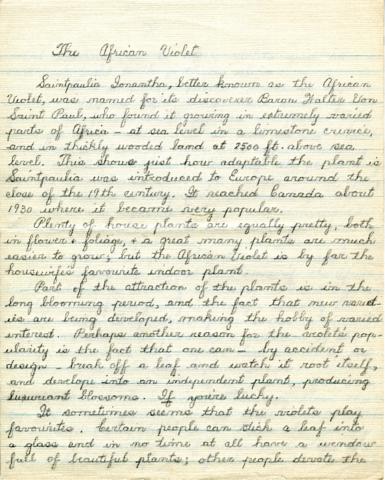 The African Violet
Saintpaulia Ionantha, better known as the African
Violet, was named for its discoverer Baron Walter Von
Saint Paul, who found it growing in extremely varied
parts of Africa - at sea level in a limestone crevice,
and in thickly wooded land at 2500 ft. above sea
level. This shows just how adaptable the plant is
Saintpaulia was introduced to Europe around the
close of the 19th century. It reached Canada about
1930 where it became very popular.
Plenty of house plants are equally pretty, both
in flower & foliage, & a great many plants are much
easier to grow; but the African Violet is by far the
housewife's favourite indoor plant.
Part of the attraction of the plants is in the
long blooming period, and the fact that new variet-
ies are being developed, making the hobby of varied
interest. Perhaps another reason for the violets pop-
ularity is the fact that one can - by accident or
design - break off a leaf and watch it root itself,
and develope into an independent plant, producing
luxuriant blossoms. If you're lucky.
It sometimes seems that the violets play
favourites. Certain people can stick a leaf into
a glass and in no time at all have a window
full of beautiful plants; other people devote the